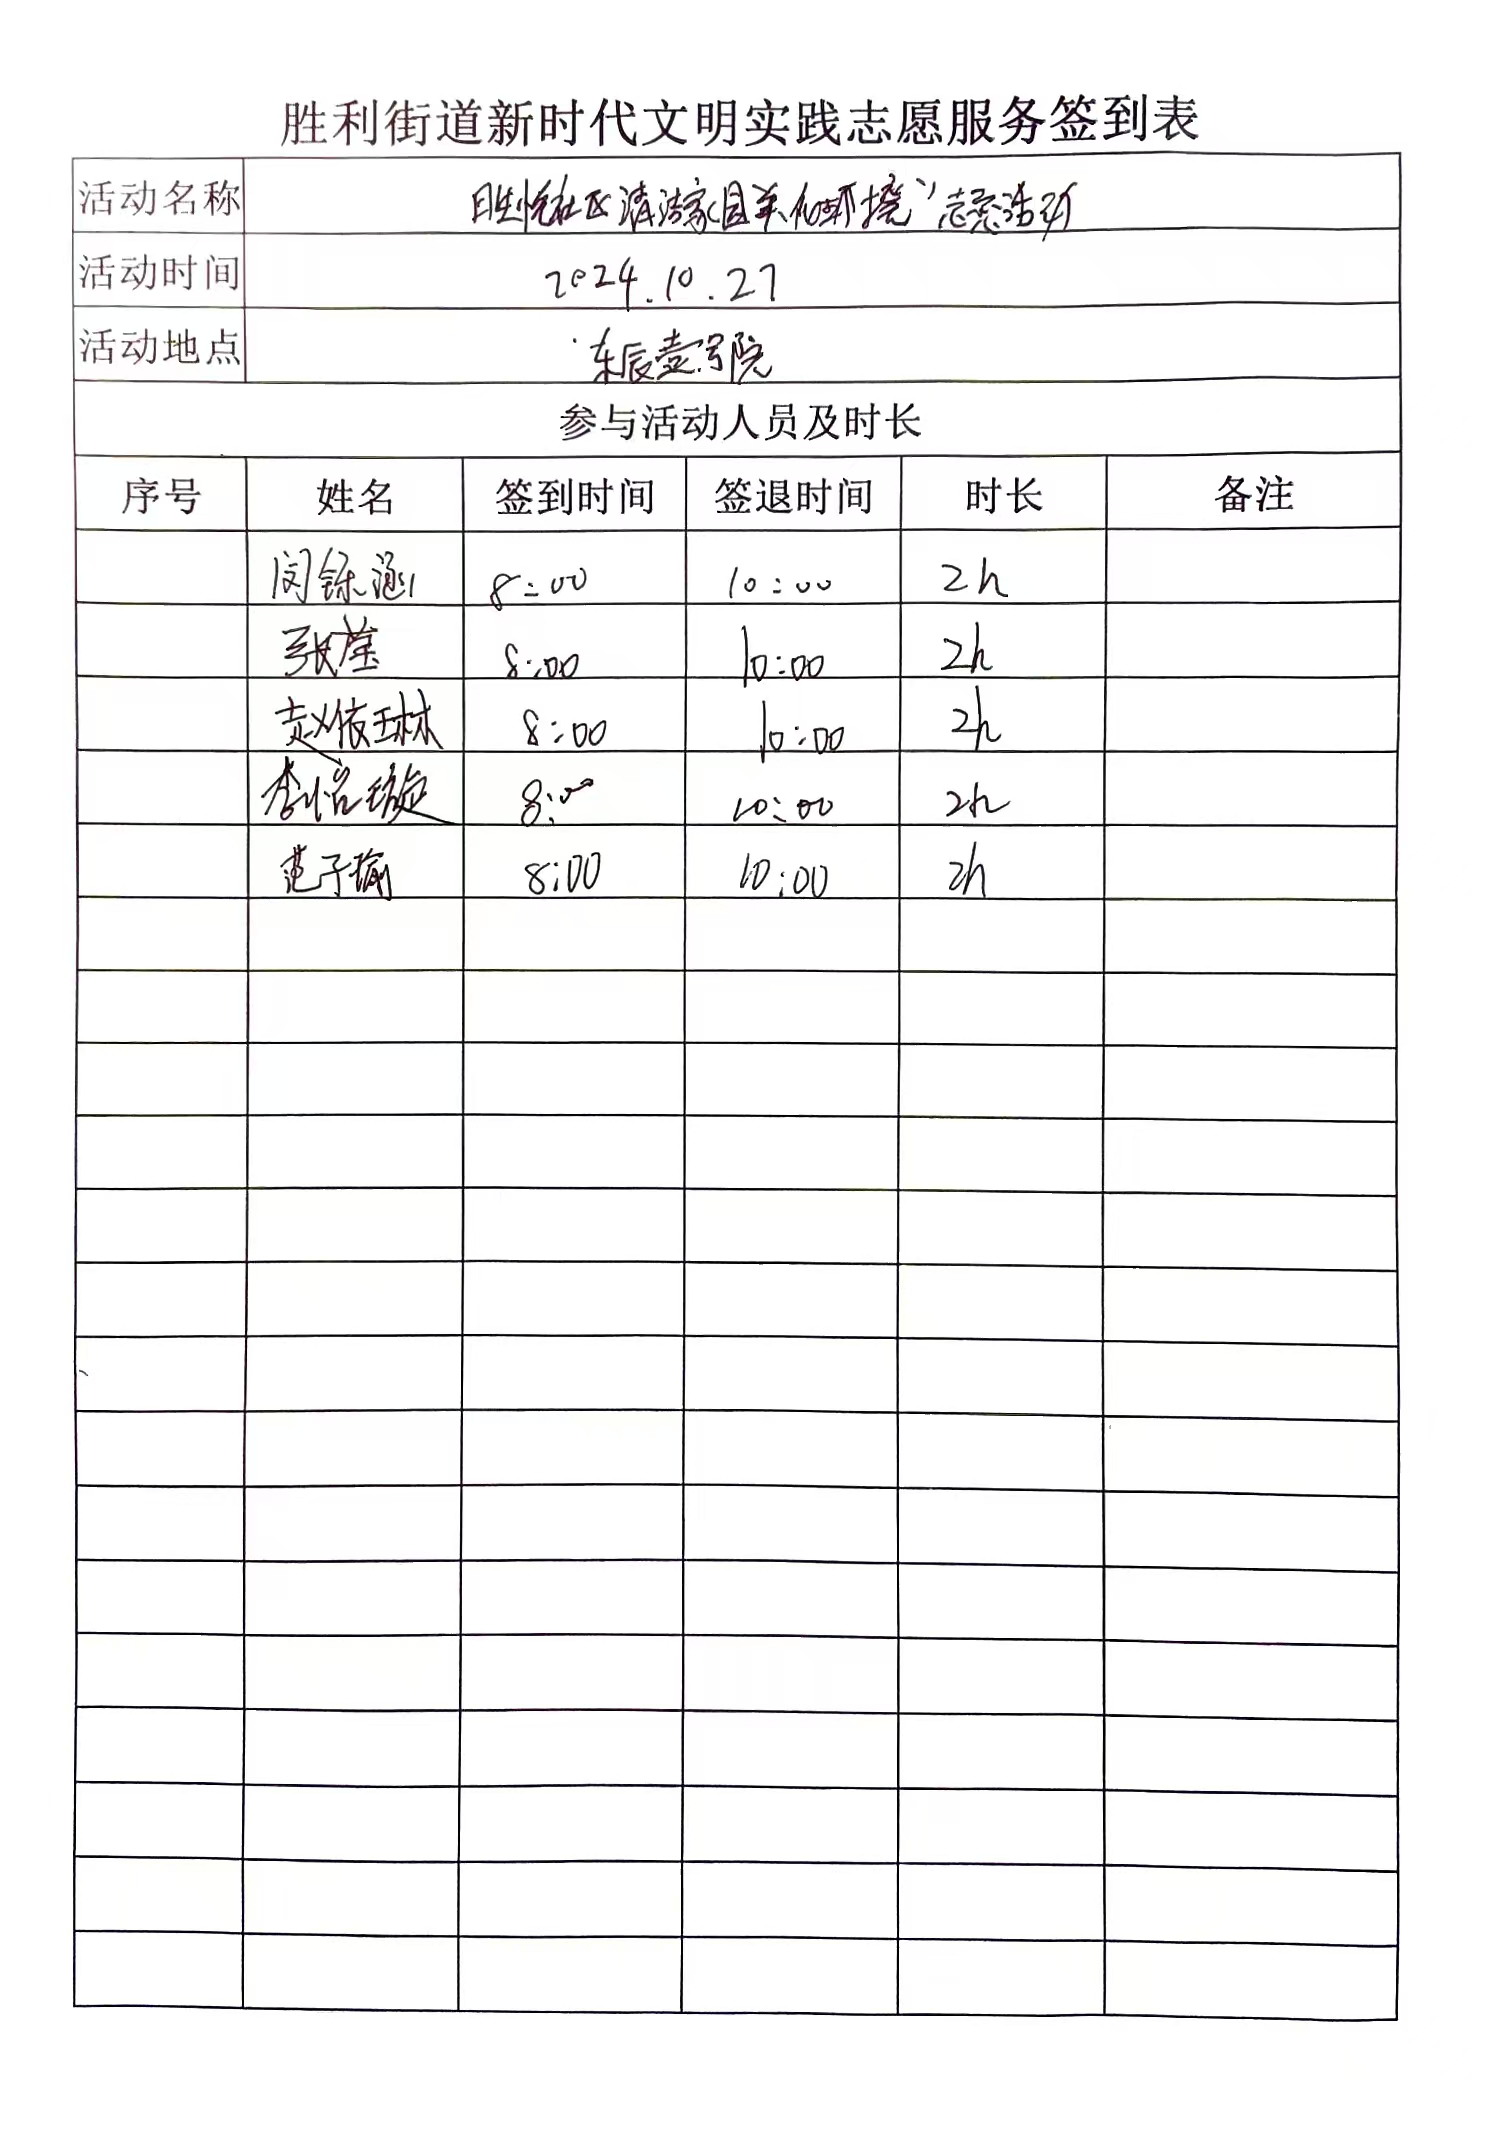 胜利街道新时代文明实践志愿服务签到表
活动名称 胜悦社区清洁家园美化环境”志愿活动
活动时间 2024.10.27
活动地点 东辰壹号院
参与活动人员及时长
序号 姓名 签到时间 签退时间 时长 备注
闵铄涵 8:00 10:00 2h
张莹 8:00 10:00 2h
赵依琳 8:00 10:00 2h
李怡璇 8:00 10:00 2h
范子瑜 8:00 10:00 2h